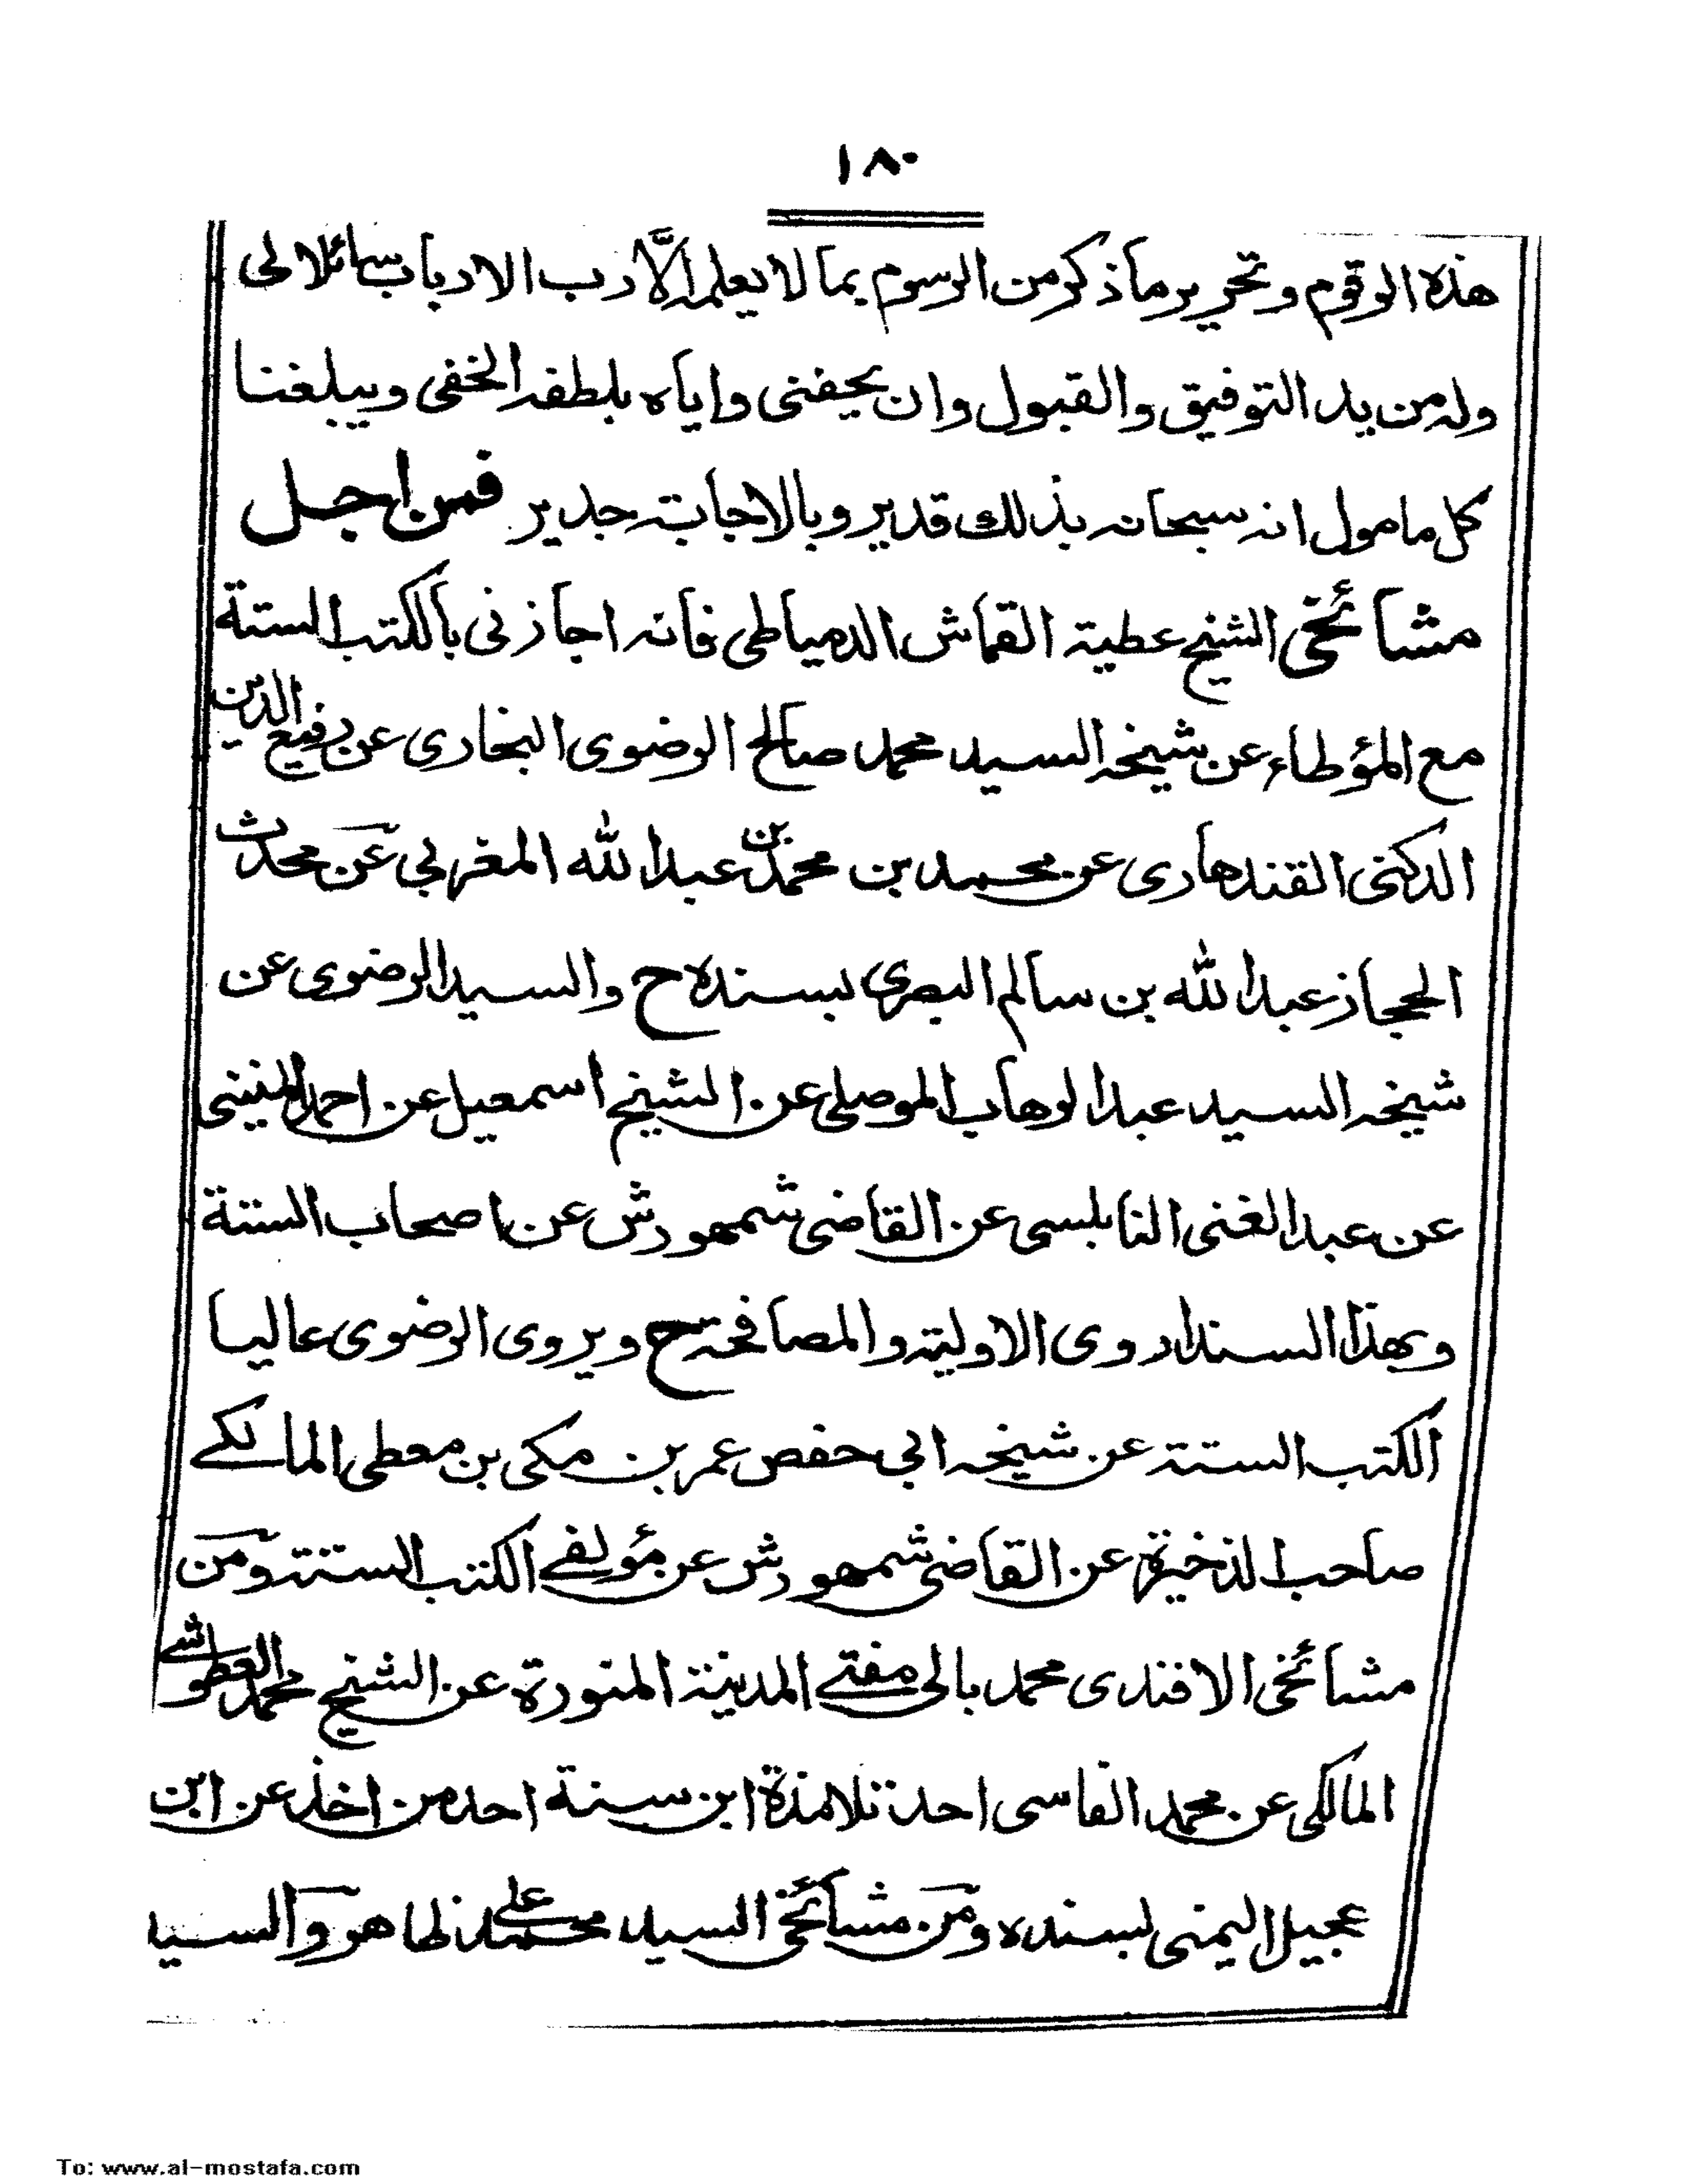 ١٨٠
هذه الرقوم وتحرير ما ذكر من الرسوم بما لا يعلمه الَّا رب الارباب سائلا لى
وله من يد التوفيق والقبول وان يحفنى واياه بلطفه الخفى ويبلغنا
كل مامول انه سبحانه بذلك قدير وبالاجابته جدير فمن اجل
مشائخى الشيخ عطيته القماش الدمياطى فانه اجازنى بالكتب الستة
مع المؤطاء عن شيخه السيد محمد صالح الرضوى البخارى عن رفيع الدين
الدكنى القندهارى عن محمد بن محمد بن عبد الله المغربي عن محدث
الحجاز عبد الله بن سالم البصرى بسنده ح والسيد الرضوى عن
شيخه السيد عبد الوهاب الموصلى عن الشيخ اسمعيل عن احمد المنينى
عن عبد الغنى النابلسى عن القاضى شمهورش عن اصحاب الستة
وبهذا السند اروى الاوليته والمصافحته ح ويروى الرضوى عاليا
الكتب الستته عن شيخه ابي حفص عمر بن مكى بن معطى المالكے
صاحب الذخيرة عن القاضى شمهورش عن مؤلفے الكتب الستته ومن
مشائخى الافندى محمد بالى مفتے المدينة المنورة عن الشيخ محمد العطوشے
المالكى عن محمد الفاسى احد تلامذة ابن سنة احد من اخذ عن ابن
عجيل اليمنى بسنده ومن مشائخى السيد محمد على ظاهر والسيد
To: www.al-mostafa.com